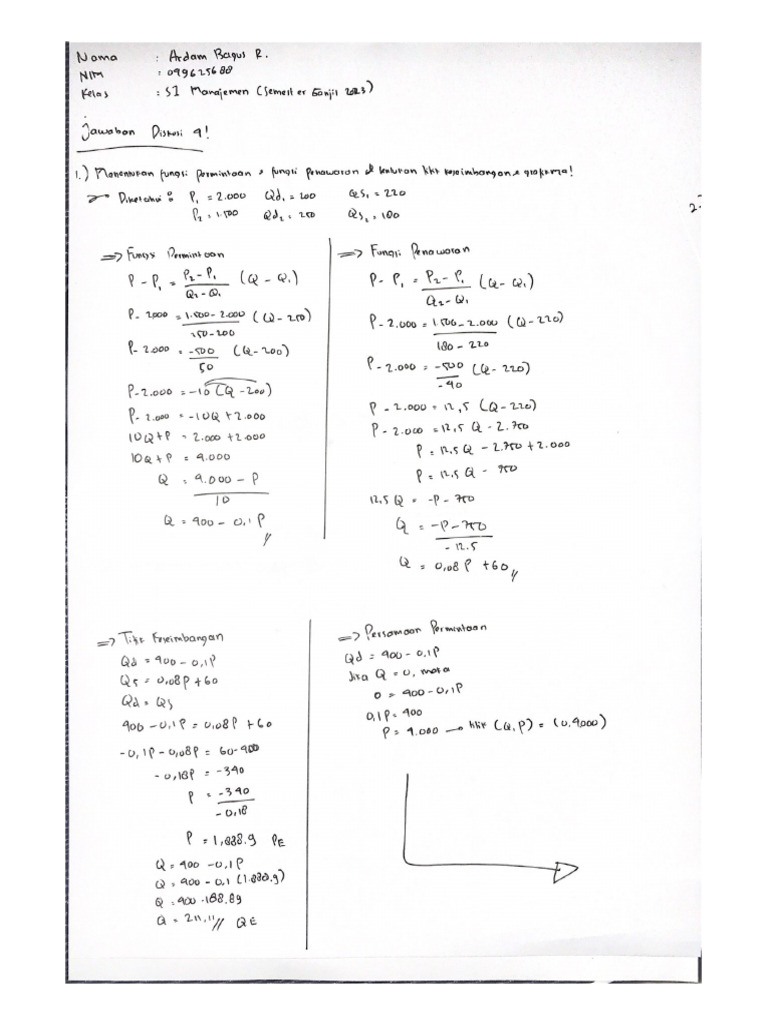 Nama : Ardam Bagus R.
NIM : 049625688
Kelas : S1 Manajemen (Semester Ganjil 2023)
Jawaban Diskusi 4!
1.) Menentukan fungsi permintaan, fungsi penawaran & tentukan titik keseimbangan & grafiknya!
Diketahui : P₁ = 2.000 Qd₁ = 200 Qs₁ = 220
P₂ = 1.500 Qd₂ = 250 Qs₂ = 180
2.
⇒ Fungsi Permintaan
P - P₁ = P₂ - P₁ / Q₂ - Q₁ (Q - Q₁)
P - 2000 = 1.500 - 2.000 / 250 - 200 (Q - 250)
P - 2.000 = -500 / 50 (Q - 200)
P - 2.000 = -10 (Q - 200)
P - 2.000 = -10Q + 2.000
10Q + P = 2.000 + 2.000
10Q + P = 4.000
Q = 4.000 - P / 10
Q = 400 - 0,1 P //
⇒ Fungsi Penawaran
P - P₁ = P₂ - P₁ / Q₂ - Q₁ (Q - Q₁)
P - 2.000 = 1.500 - 2.000 / 180 - 220 (Q - 220)
P - 2.000 = -500 / -40 (Q - 220)
P - 2.000 = 12,5 (Q - 220)
P - 2.000 = 12,5 Q - 2.750
P = 12,5 Q - 2.750 + 2.000
P = 12,5 Q - 750
12,5 Q = -P - 750
Q = -P - 750 / -12,5
Q = 0,08 P + 60 //
⇒ Titik Keseimbangan
Qd = 400 - 0,1P
Qs = 0,08P + 60
Qd = Qs
400 - 0,1P = 0,08P + 60
-0,1P - 0,08P = 60 - 400
-0,18P = -340
P = -340 / -0,18
P = 1,888.9 PE
Q = 400 - 0,1P
Q = 400 - 0,1 (1.888,9)
Q = 400 - 188,89
Q = 211,11 // QE
⇒ Persamaan Permintaan
Qd = 400 - 0,1P
Jika Q = 0, maka
0 = 400 - 0,1P
0,1P = 400
P = 4.000 → titik (Q, P) = (0, 4.000)